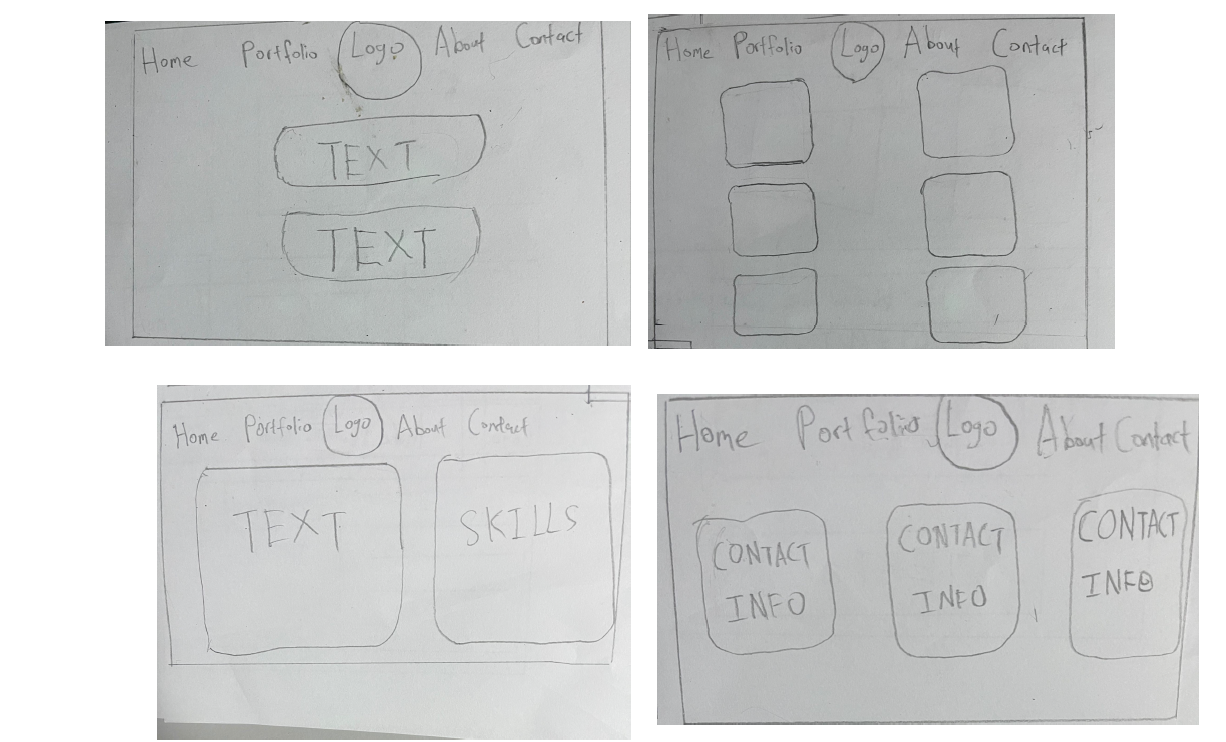 Home Portfolio Logo About Contact
TEXT
TEXT
Home Portfolio Logo About Contact
Home Portfolio Logo About Contact
TEXT SKILLS
Home Portfolio Logo About Contact
CONTACT CONTACT CONTACT
INFO INFO INFO